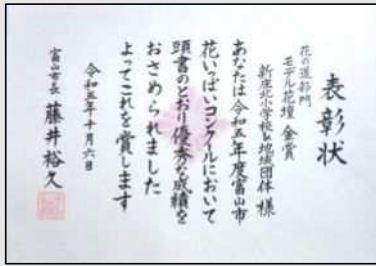 表彰状
花の道部門
モデル花壇 金賞
新庄北小学校・地域団体 様
あなたは令和五年度富山市
花いっぱいコンクールにおいて
頭書のとおり優秀な成績を
おさめられました
よってこれを賞します
令和五年十月六日
富山市長 藤井裕久